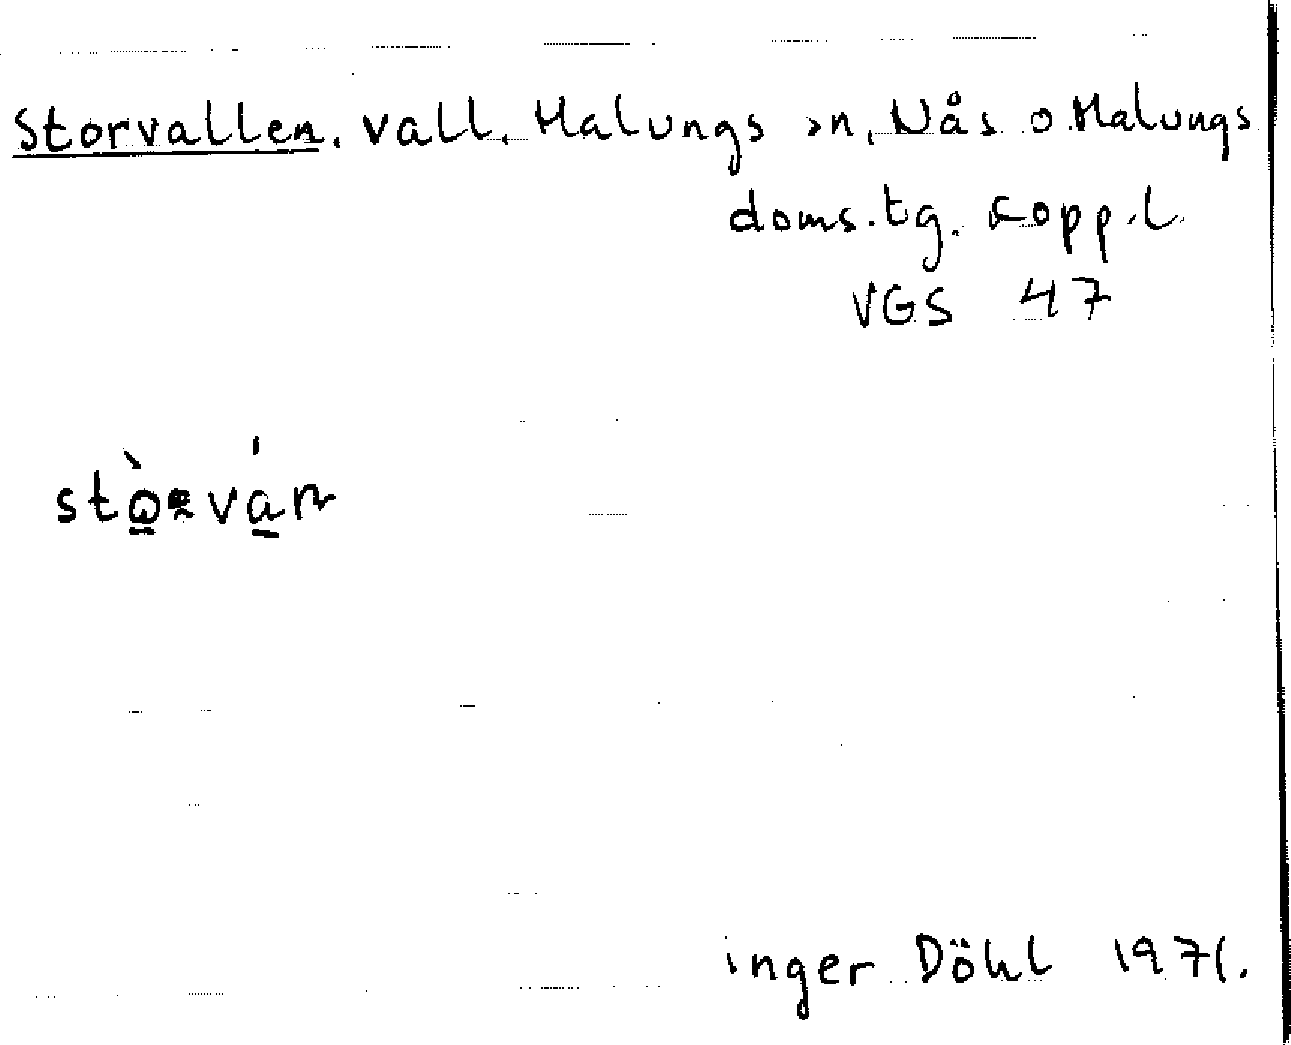 Storvallen. vall. Malungs sn, Nås o Malungs
doms.tg. Kopp.l
VGS 47
inger Döhl 1971.